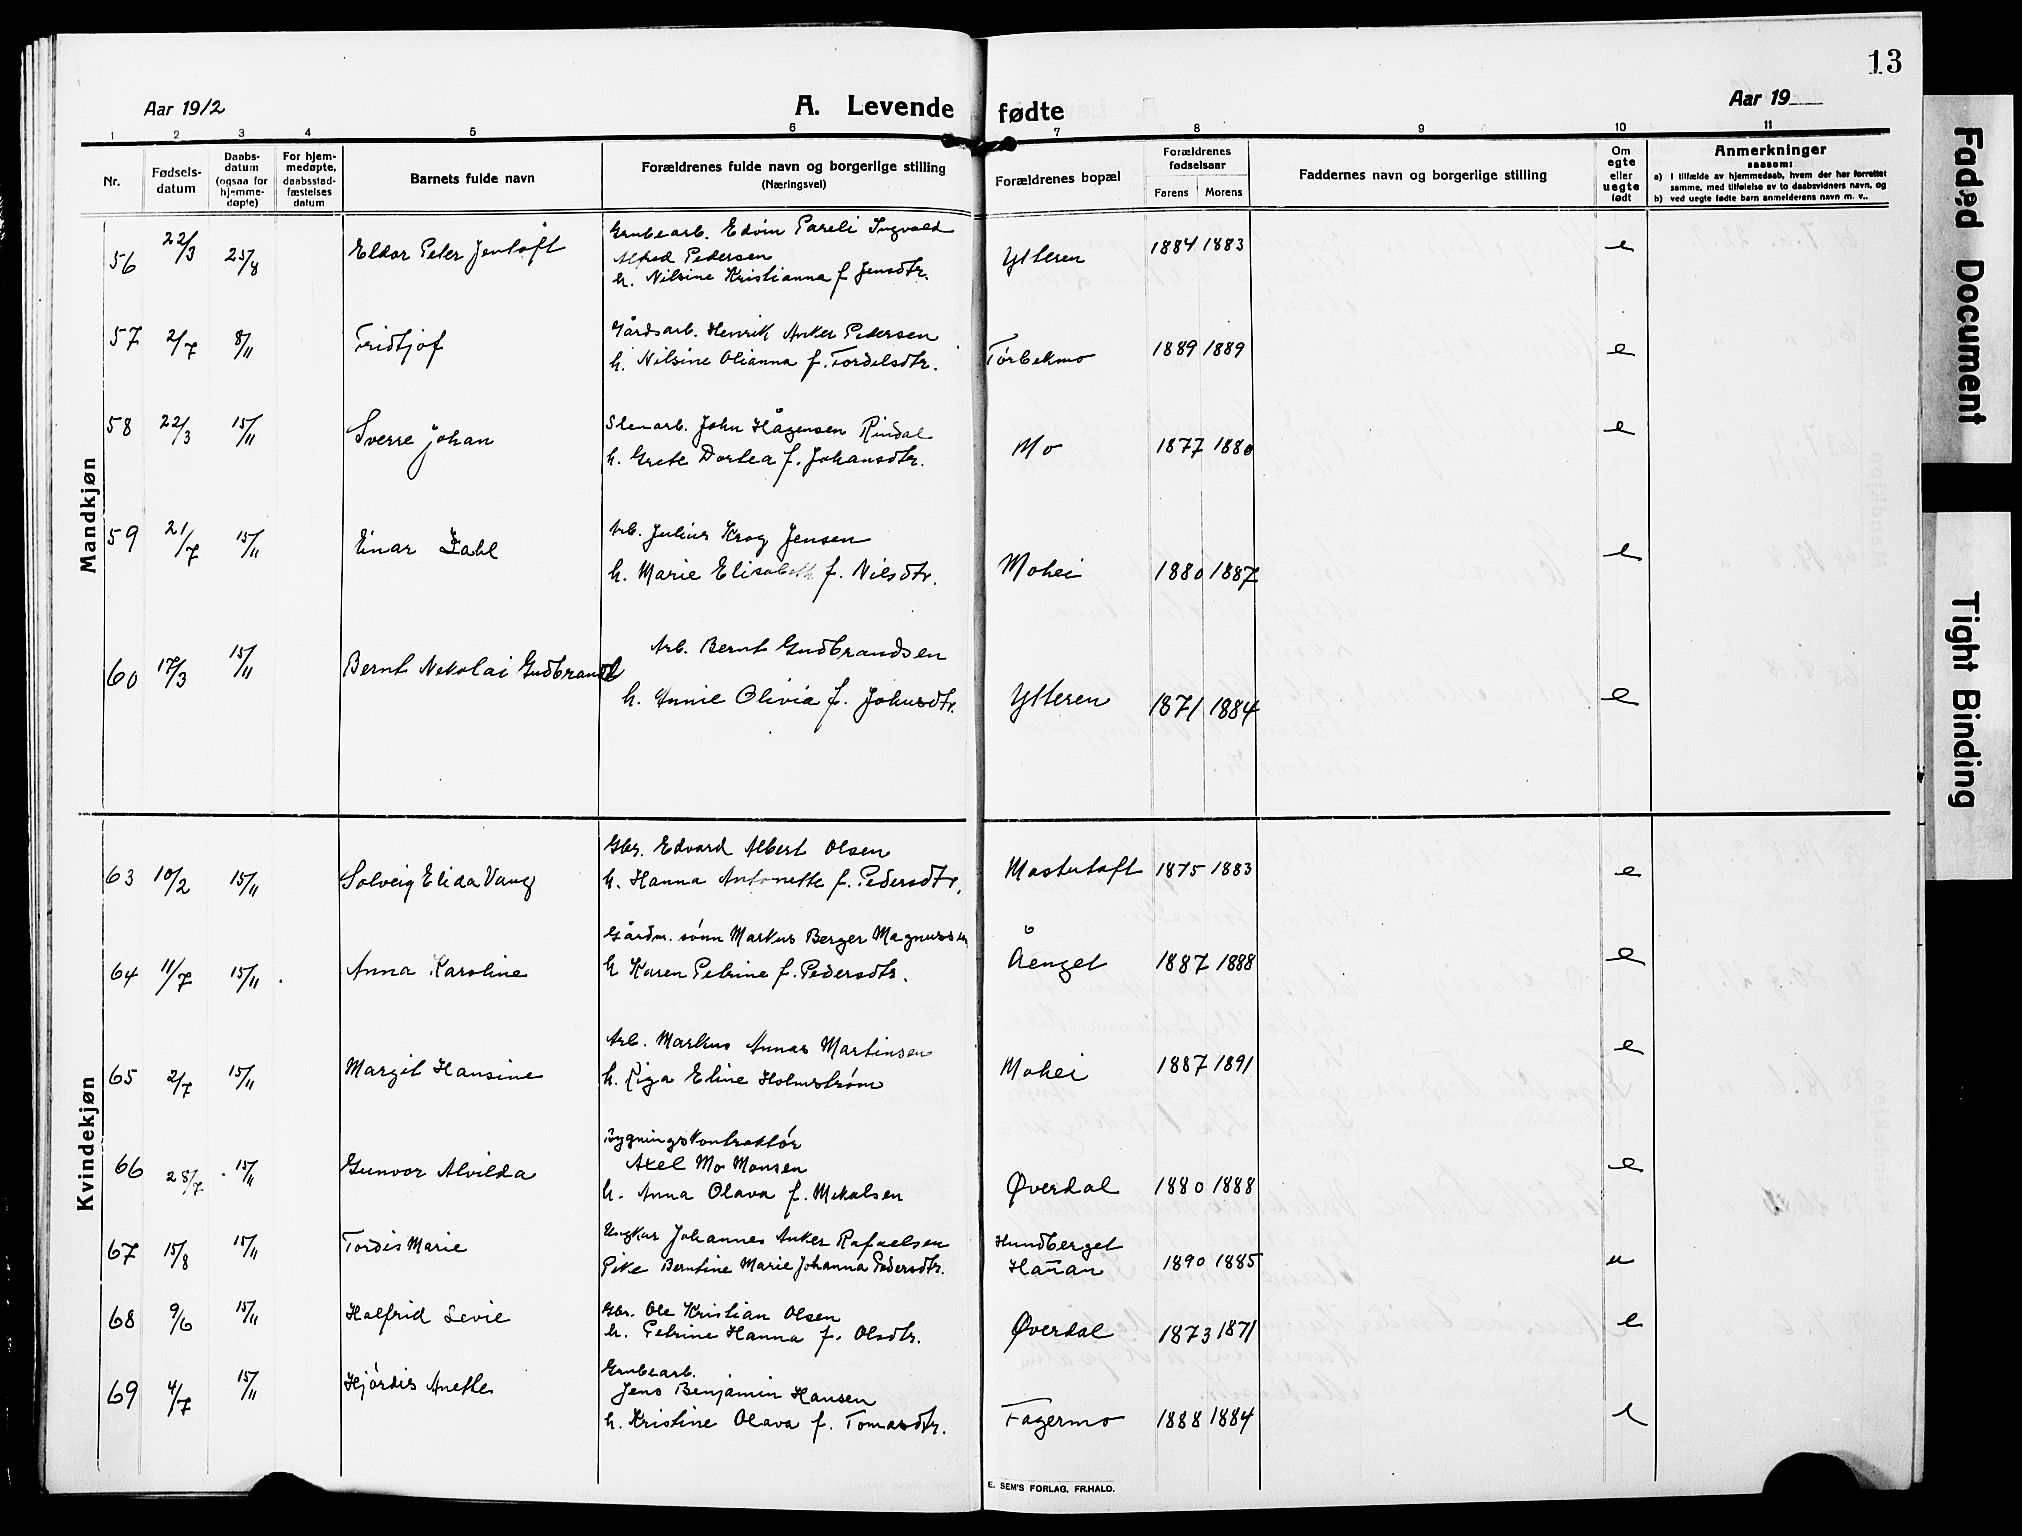 13
Aar 1912
A. Levende fødte
Aar 19
1 2 3 4 5 6 7 8 9 10 11
Nr.
Fødsels-
datum
Daabs-
datum
(ogsaa for
hjemme-
døpte)
For hjem-
medøpte,
daabsstad-
fæstelses
datum
Barnets fulde navn
Forældrenes fulde navn og borgerlige stilling
(Næringsvei)
Forældrenes bopæl
Forældrenes
fødselsaar
Farens Morens
Faddernes navn og borgerlige stilling
Om
egte
eller
uegte
født
Anmerkninger
saasom:
a) I tilfælde av hjemmedaab, hvem der har forrettet
samme, med tilføielse av to daabsvidners navn, og
b) ved uegte fødte barn anmelderens navn m. v..
Mandkjøn
56 22/3 25/8 Eldor Peter Jentoft
Grubearb. Edvin Pareli Ingvald
Alfred Pedersen
h. Nilsine Kristianna f Jensdtr.
Ytteren 1884 1883 e
57 2/7 8/11 Fridtjof
Gårdsarb. Henrik Anker Petersen
h. Nilsine Olianna f. Tordelsdtr.
Tørbekmo 1889 1889 e
58 22/3 15/11 Sverre Johan
Stenarb. John Hågensen Rindal
h. Grete Dortea f. Johansdtr.
Mo 1877 1880 e
59 21/7 15/11 Einar Zahl
Arb. Julius Krog Jensen
h. Marie Elisabeth f. Nilsdtr.
Mohei 1880 1887 e
60 17/3 15/11 Bernt Nekolai Gudbrand
Arb. Bernt Gudbrandsen
h. Annie Olivia f. Johnsdtr.
Ytteren 1871 1884 e
Kvindekjøn
63 10/2 15/11 Solveig Elida Vang
Gbr. Edvard Albert Olsen
h. Hanna Antonette f. Pedersdtr.
Mastutoft 1875 1883 e
64 11/7 15/11 Anna Karoline
Gårdm. sønn Markus Berger Magnussen
h Karen Petrine f. Pedersdtr.
Åenget 1887 1888 e
65 2/7 15/11 Margit Hansine
Arb. Markus Annas Martinsen
h. Riga Eline Holmstrøm
Mohei 1887 1891 e
66 28/7 15/11 Gunvor Alvilda
Bygningskontraktør
Axel Mo Monsen
h. Anna Olava f. Mikalsen
Øverdal 1880 1888 e
67 15/8 15/11 Tordis Marie
Ungkar Johannes Anker Rafaelsen
Pike Berntine Marie Johanna Pedersdtr.
Hundberget
Hauan 1890 1885 u
68 9/6 15/11 Halfrid Sevie
Gbr. Ole Kristian Olsen
h. Petrine Hanna f. Olsdtr.
Øverdal 1873 1871 e
69 4/7 15/11 Hjørdis Anette
Grubearb.
Jens Benjamin Hansen
h. Kristine Olava f. Tomasdtr.
Fagermo 1888 1884 e
E. SEM'S FORLAG, FR.HALD.
Faded Document
Tight Binding